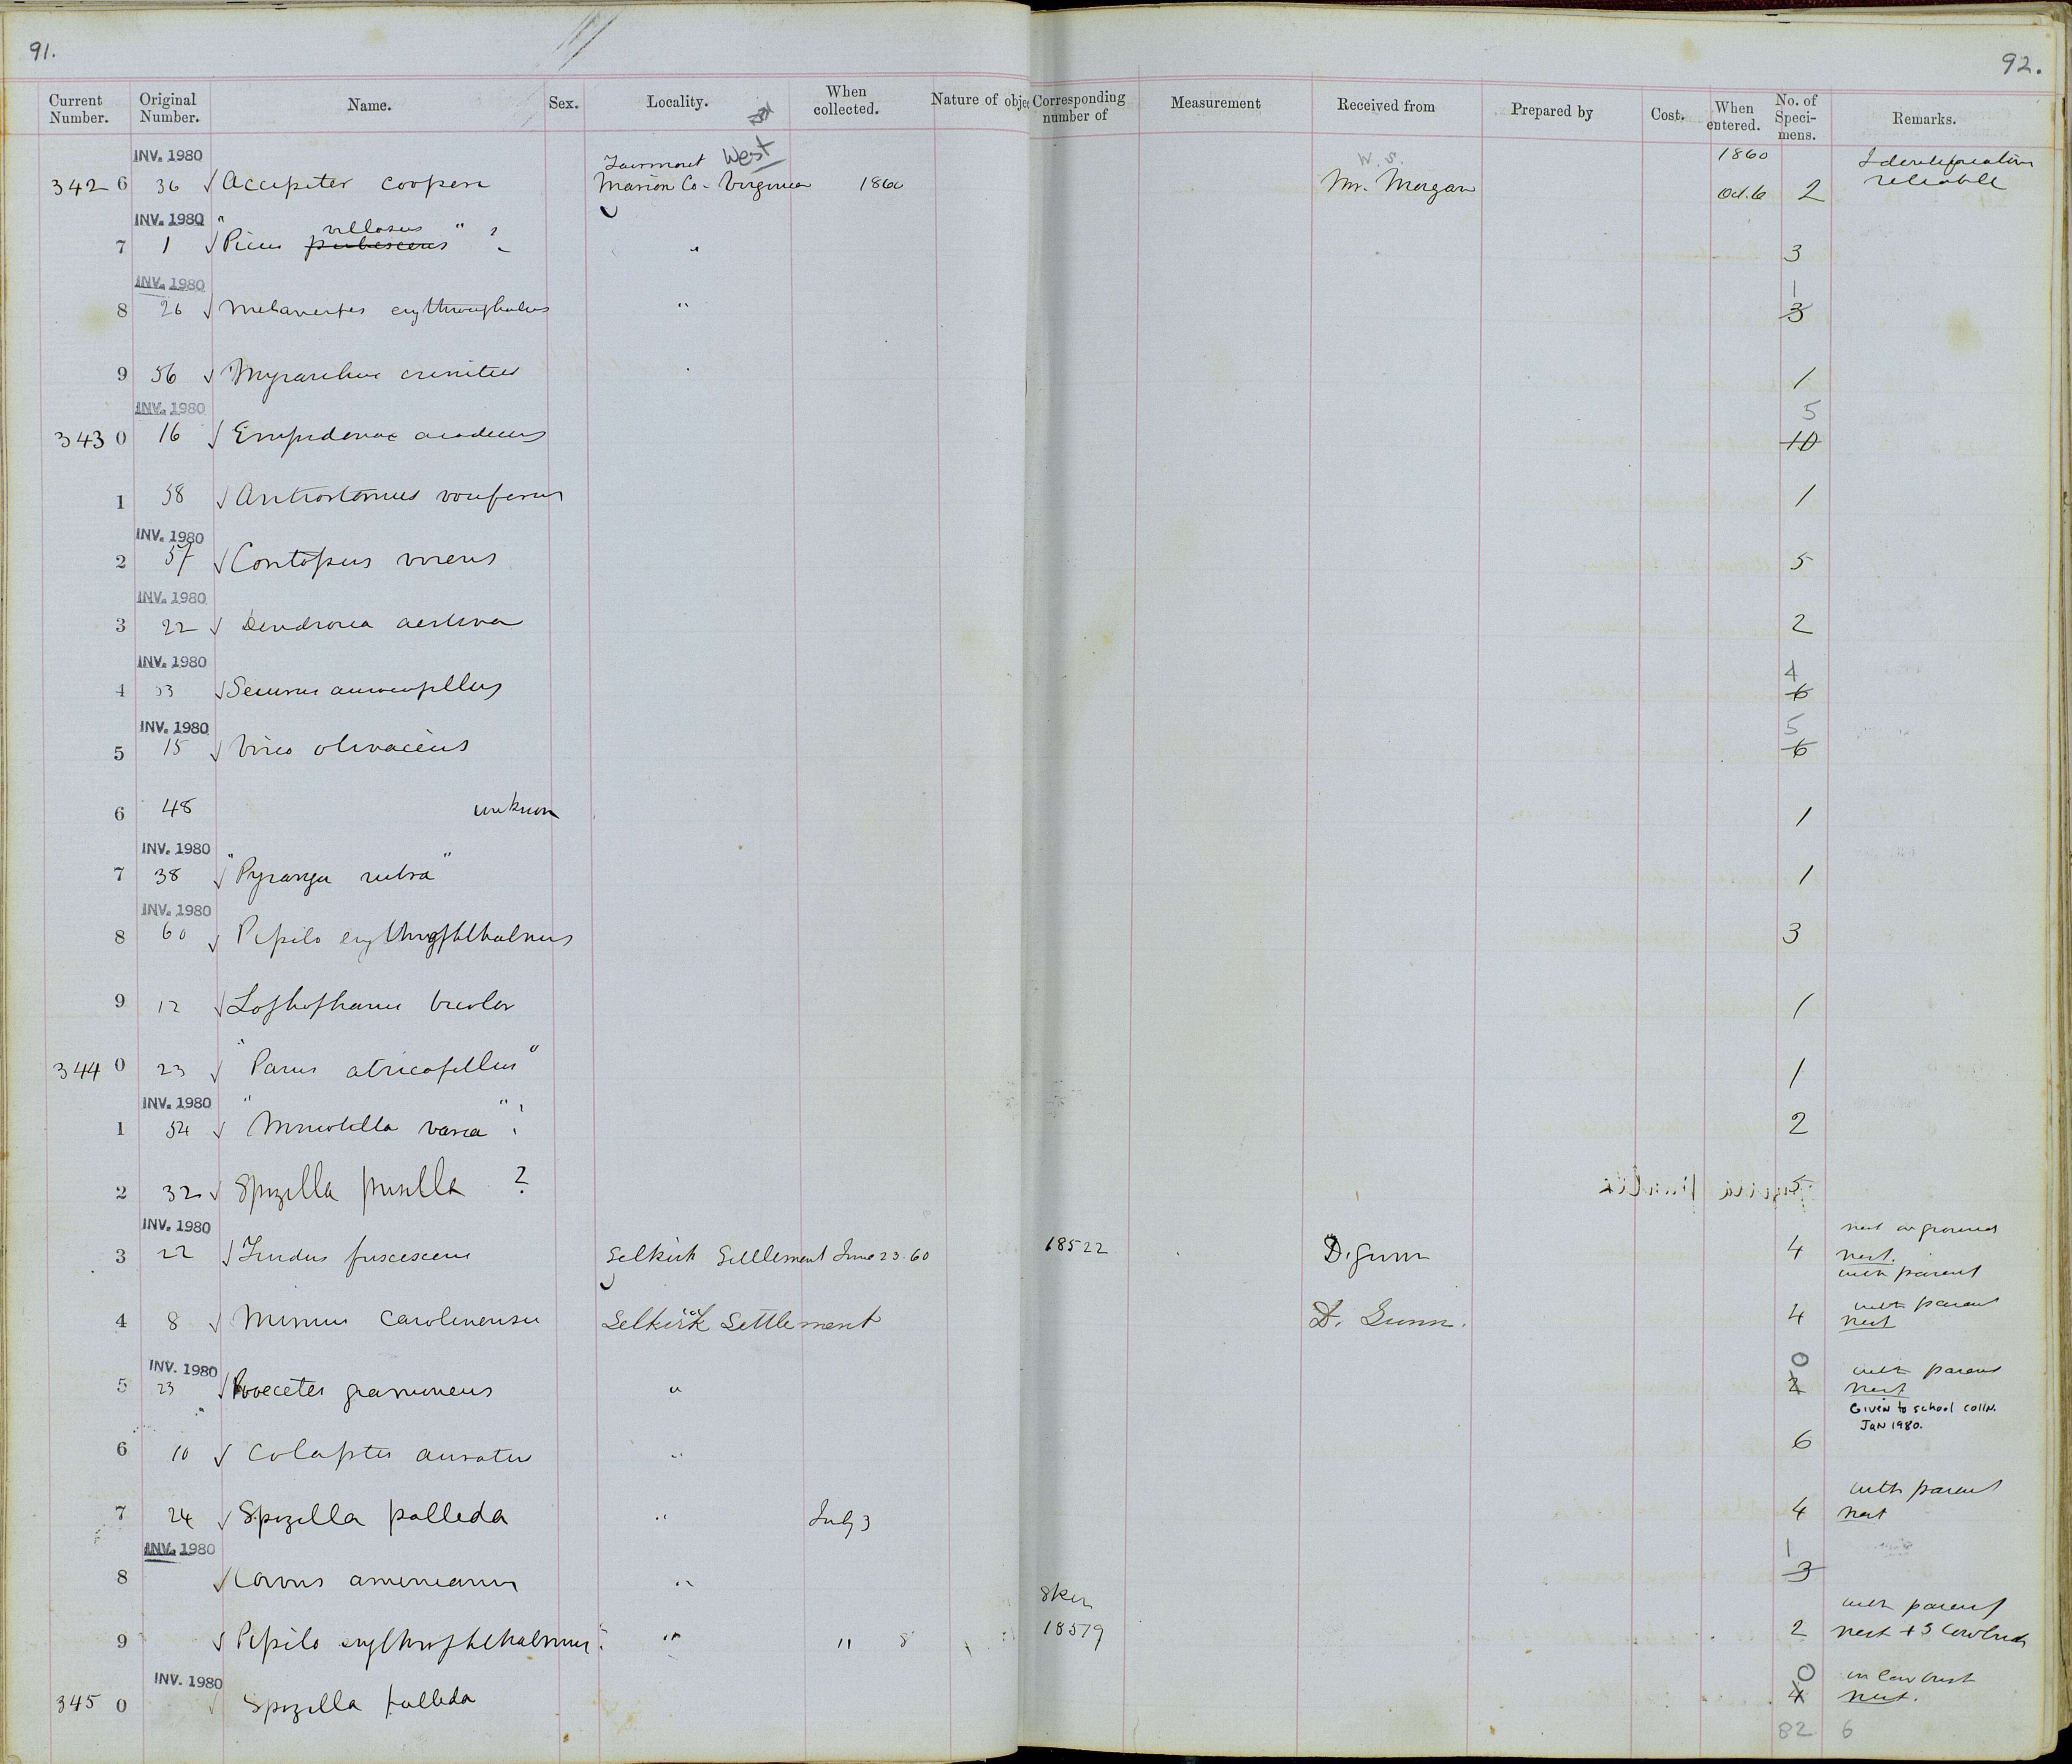 91.
92.
Current Number. Original Number. Name. Sex. Locality. When collected. Nature of obje Corresponding number of Measurement Received from Prepared by Cost. When entered. No. of Speci-mens. Remarks.
INV. 1980 Fairmont West W. S. 1860 Identification
342 6 36 √ Accipiter cooperi Marion Co. Virginia 1860 Mr. Morgan Oct. 6 2 reliable
INV. 1980 villosus
7 1 √ "Picus pubescens" ? " 3
INV. 1980 1
8 26 √ Melanerpes erythrocephalus " 3
9 56 √ Myiarchus crinitus " 1
INV. 1980 5
343 0 16 √ Empidonax acadicus 10
1 58 √ Antrostomus vociferus 1
INV. 1980
2 57 √ Contopus virens 5
INV. 1980
3 22 √ Dendroica aestiva 2
INV. 1980 4
4 53 √ Seiurus aurocapillus 6
INV. 1980 5
5 15 √ Vireo olivaceus 6
6 48 unknown 1
INV. 1980
7 38 √ "Pyranga rubra" 1
INV. 1980
8 60 √ Pipilo erythrophthalmus 3
9 12 √ Lophophanes bicolor 1
344 0 23 √ "Parus atricapillus" 1
INV. 1980
1 54 √ "Mniotilta varia" ? 2
2 32 √ Spizella pusilla ? 5
INV. 1980 nest on ground
3 22 √ Turdus fuscescens Selkirk Settlement June 23. 60 18522 D. Gunn 4 nest.
with parent
with parent
4 8 √ Mimus carolinensis Selkirk Settlement D. Gunn. 4 nest
INV. 1980 0 with parent
5 23 √ Pooecetes gramineus " 2 nest
Given to school colln.
Jan 1980.
6 10 √ Colaptes auratus " 6
with parent
7 24 √ Spizella pallida " July 3 4 nest
INV. 1980 1
8 √ Corvus americanus " 3
Skin with parent
9 √ Pipilo erythrophthalmus? " " 8 18579 2 nest + 3 cowbirds
INV. 1980 0
345 0 √ Spizella pallida 4 nest.
82 6